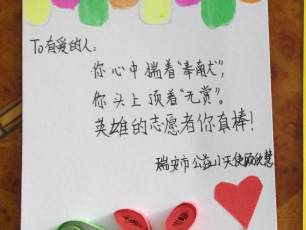 To有爱的人：
你心中揣着“奉献”，
你头上顶着“无赏”。
英雄的志愿者你真棒！
瑞安市公益小天使欣慧